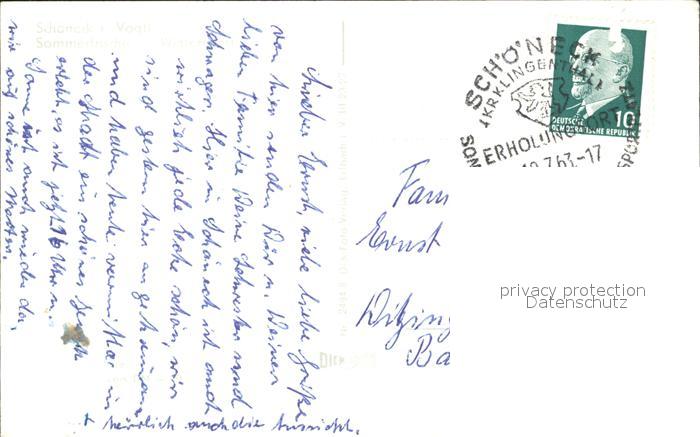 Schöneck i. Vogtl.
Sommerfrische
Lieber Ernst, viele liebe Grüße
von hier senden Dir u. Deiner
lieben Familie Deine Schwester und
Schwager. Hier in Schöneck ist auch
wirklich jede Ecke schön, wir
sind gestern hier an gekommen
und haben heute vormittag in
der Stadt ein schönes
es ist jetzt 16 Uhr u.
Sonne ist auch wieder da,
wir auf schönes Wetter.
+ herrlich auch die Aussicht.
SCHÖNECK
KR KLINGENTHAL
ERHOLUNGSORT
7.63.-17
DEUTSCHE
DEMOKRATISCHE REPUBLIK
10
Fam
Ernst
Kitzing
Ba
privacy protection
Datenschutz